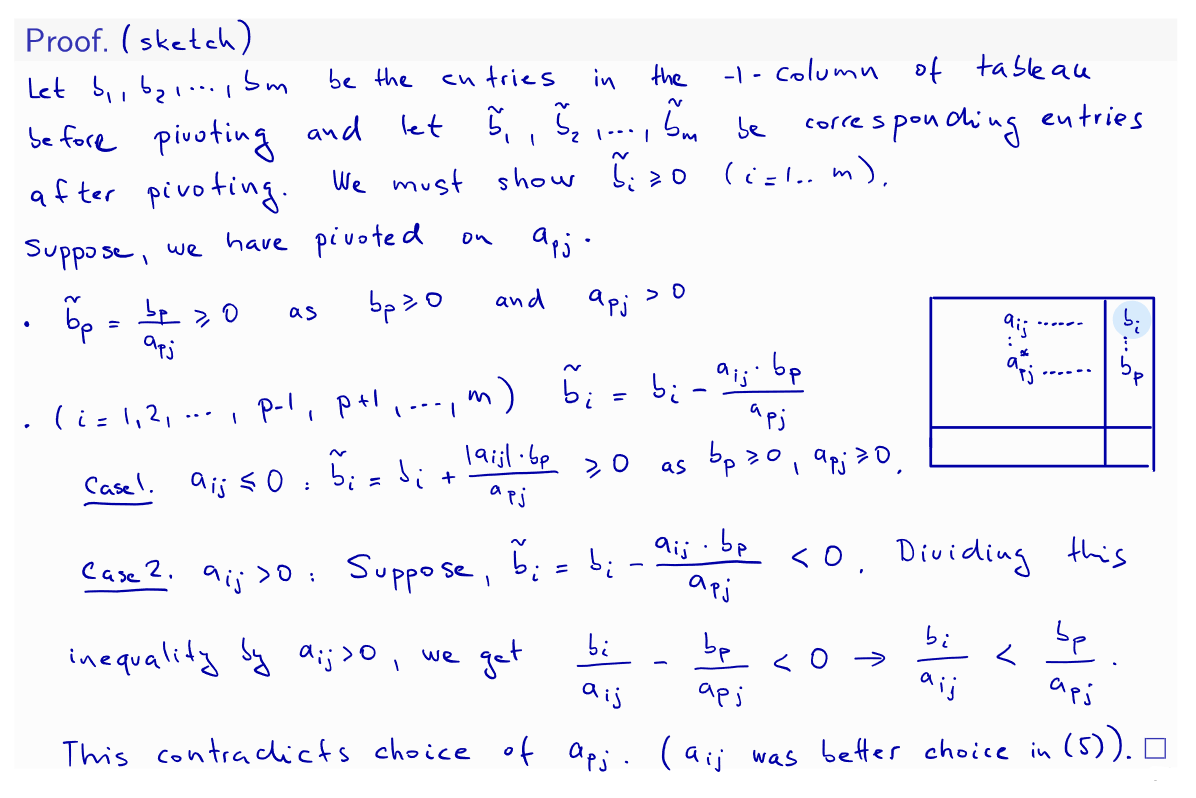 Proof. (sketch)
Let b₁, b₂, ..., bm be the entries in the -1-column of tableau
before pivoting and let b̃₁, b̃₂, ..., b̃m be corresponding entries
after pivoting. We must show b̃ᵢ ⩾ 0 (i=1.. m).
Suppose, we have pivoted on a_pj.
• b̃_p = b_p/a_pj ⩾ 0 as b_p ⩾ 0 and a_pj > 0
a_ij ...... b_i
⋮ ⋮
a*_pj ...... b_p
• (i = 1,2, ..., p-1, p+1, ..., m) b̃_i = b_i - a_ij · b_p/a_pj
Case 1. a_ij ⩽ 0 : b̃_i = b_i + |a_ij| · b_p/a_pj ⩾ 0 as b_p ⩾ 0, a_pj ⩾ 0.
Case 2. a_ij > 0 : Suppose, b̃_i = b_i - a_ij · b_p/a_pj < 0. Dividing this
inequality by a_ij > 0, we get b_i/a_ij - b_p/a_pj < 0 → b_i/a_ij < b_p/a_pj.
This contradicts choice of a_pj. (a_ij was better choice in (5)). □